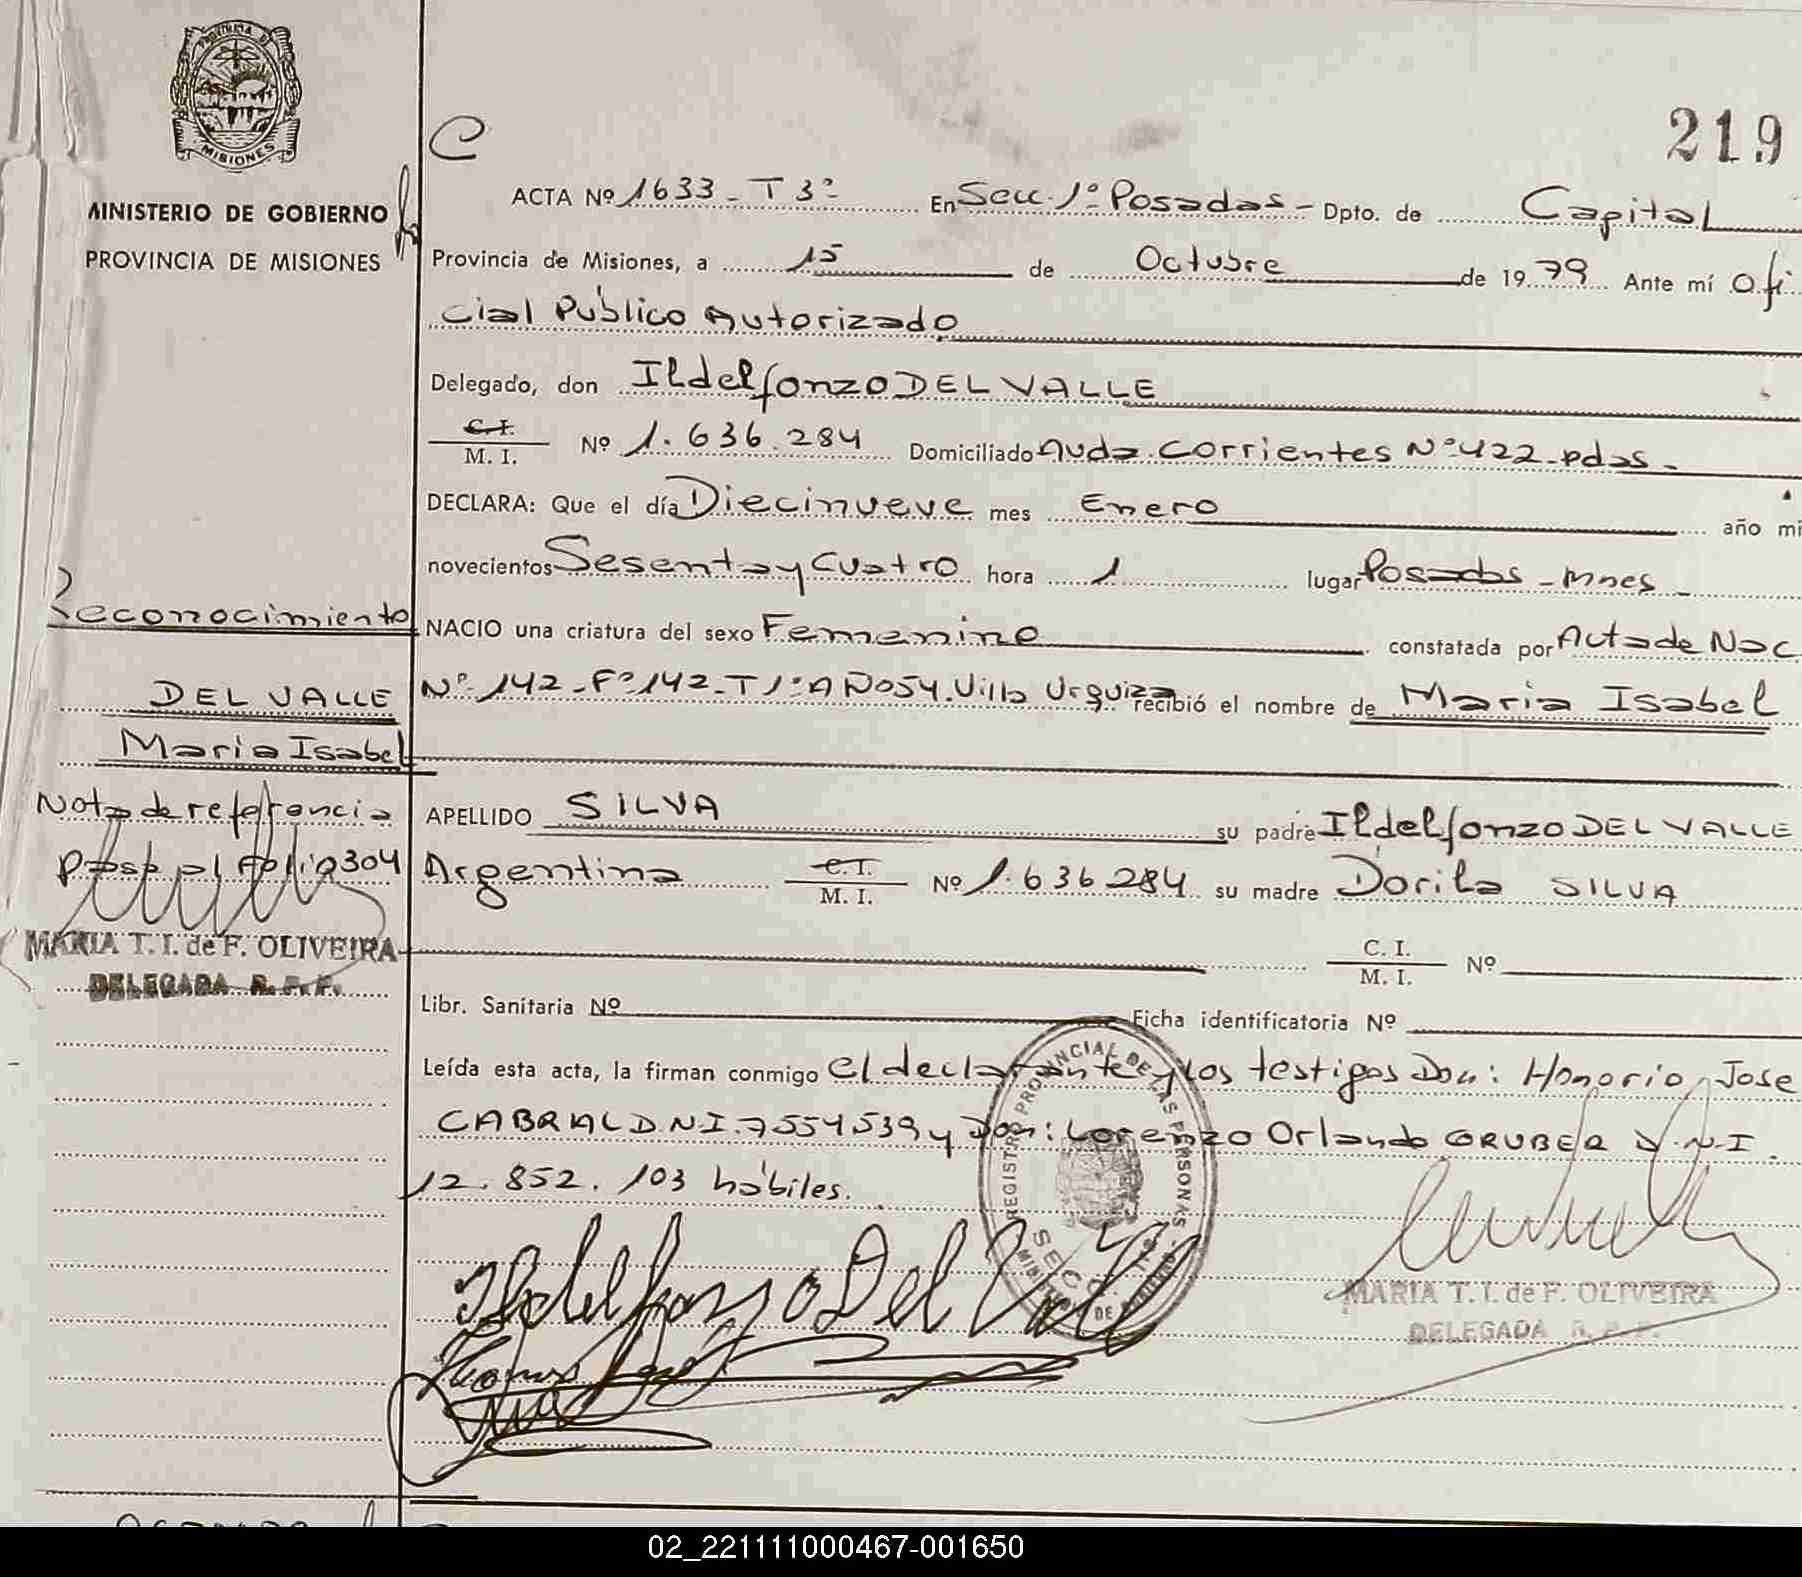 PROVINCIA DE
MISIONES
MINISTERIO DE GOBIERNO
PROVINCIA DE MISIONES
Reconocimiento
DEL VALLE
Maria Isabel
Nota de referencia
pase al folio 304
MARIA T. I. de F. OLIVEIRA
DELEGADA R. P. P.
C
219
ACTA Nº 1633 - T 3º En Secc. 1º Posadas - Dpto. de Capital
Provincia de Misiones, a 15 de Octubre de 1979 Ante mí Ofi
cial Público Autorizado
Delegado, don Ildelfonzo DEL VALLE
C.I. / M. I. Nº 1.636.284 Domiciliado Avda. Corrientes Nº 422 - pdas -
DECLARA: Que el día Diecinueve mes Enero año mi
novecientos Sesenta y Cuatro hora 1 lugar Posadas - Mnes -
NACIO una criatura del sexo Femenino constatada por Acta de Nac
Nº 142 - Fº 142 - T 1º AÑO 54. Villa Urquiza recibió el nombre de Maria Isabel
APELLIDO SILVA su padre Ildelfonzo DEL VALLE
Argentina C.I. / M. I. Nº 1.636 284 su madre Dorila SILVA
C. I. / M. I. Nº
Libr. Sanitaria Nº Ficha identificatoria Nº
Leída esta acta, la firman conmigo el declarante y los testigos Don: Honorio Jose
CABRAL D.N.I. 7554539 y Don: Lorenzo Orlando GRUBER D.N.I.
12.852.103 hábiles.
REGISTRO PROVINCIAL DE LAS PERSONAS
Ildelfonzo Del Valle
MARIA T. I. de F. OLIVEIRA
DELEGADA R. P. P.
02_221111000467-001650